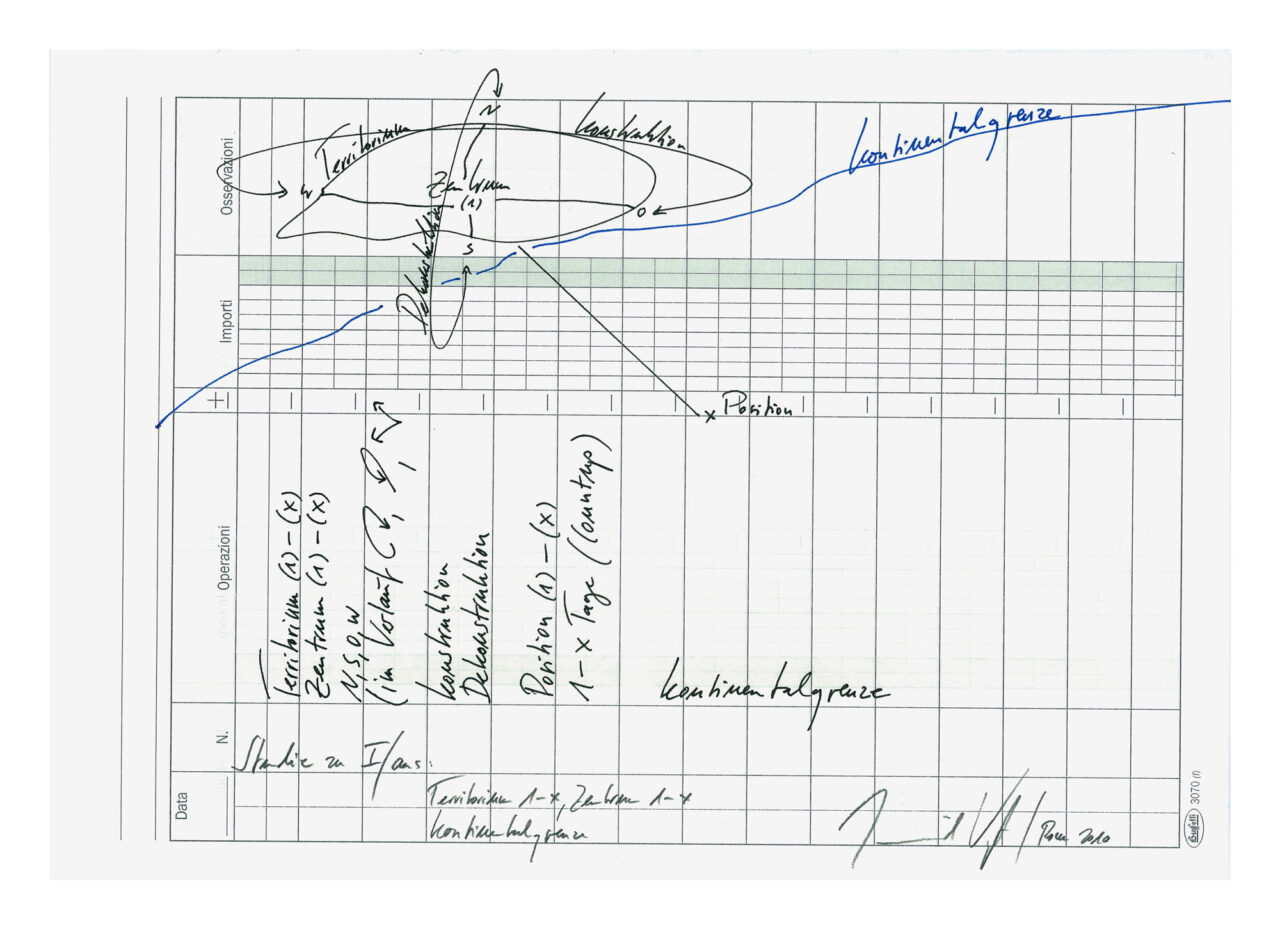 Territorium
Konstruktion
Kontinentalgrenze
N
W
Zentrum
(1)
O
S
Dekonstruktion
x Position
Territorium (1) – (x)
Zentrum (1) – (x)
N, S, O, W
(im Verlauf
Konstruktion
Dekonstruktion
Position (1) – (x)
1 – x Tage (Countup)
Kontinentalgrenze
Studie zu I/aus:
Territorium 1–x, Zentrum 1–x
Kontinentalgrenze
Rom 2010
Osservazioni
Importi
+
Operazioni
N.
Data
buffetti 3070 (f)